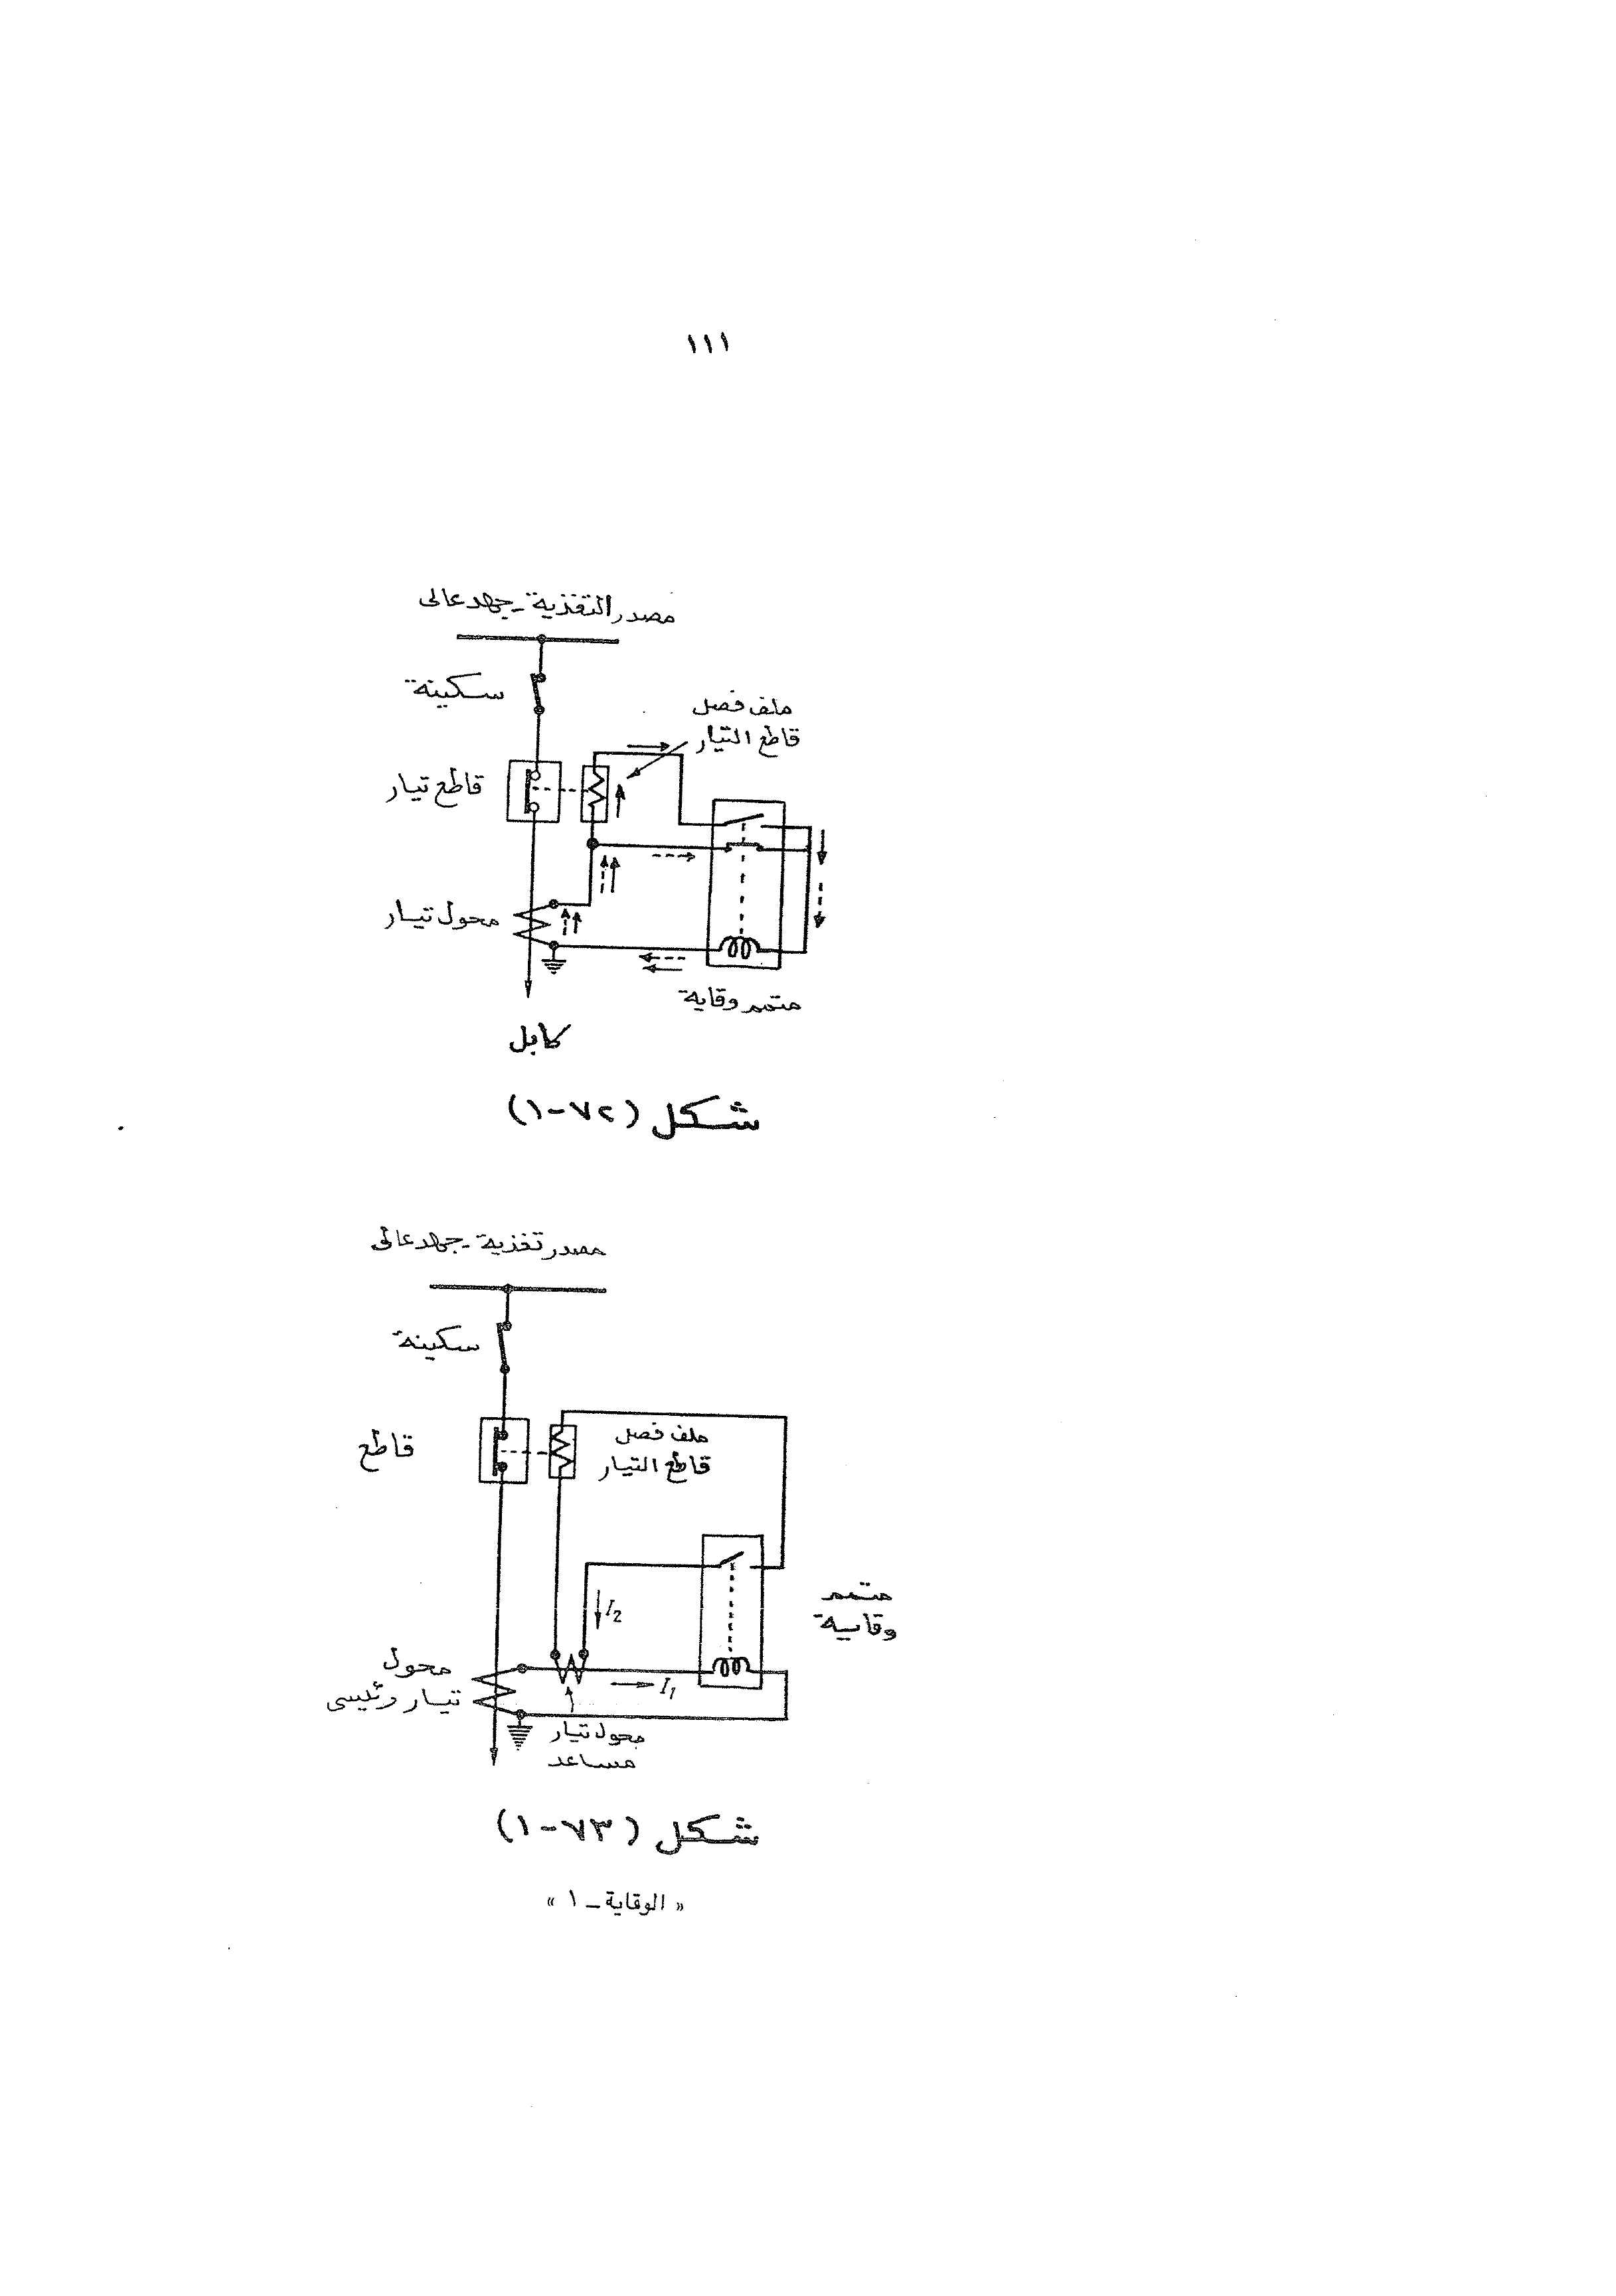 ١١١
مصدر التغذية - جهد عالى
سكينة
ملف فصل
قاطع التيار
قاطع تيار
محول تيار
متمم وقاية
كابل
شكل (٧٢-١)
مصدر تغذية - جهد عالى
سكينة
قاطع
ملف فصل
قاطع التيار
I₂
متمم
وقاية
محول
تيار رئيسى
I₁
محول تيار
مساعد
شكل (٧٣-١)
« الوقاية - ١ »